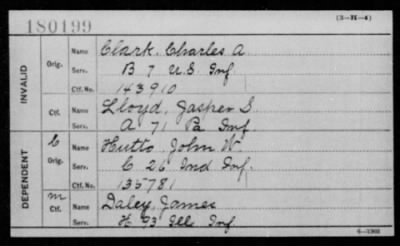 180199
(3—H—4)
INVALID
Orig.
Name Clark, Charles A.
Serv. B 7 U.S. Inf
Ctf. No. 143910
Ctf.
Name Lloyd, Jasper S
Serv. A 71 Pa Inf.
DEPENDENT
C
Orig.
Name Hutto, John W.
Serv. C 26 Ind Inf.
Ctf. No. 135781
m
Ctf.
Name Daley, James
Serv. H 93 Ill Inf